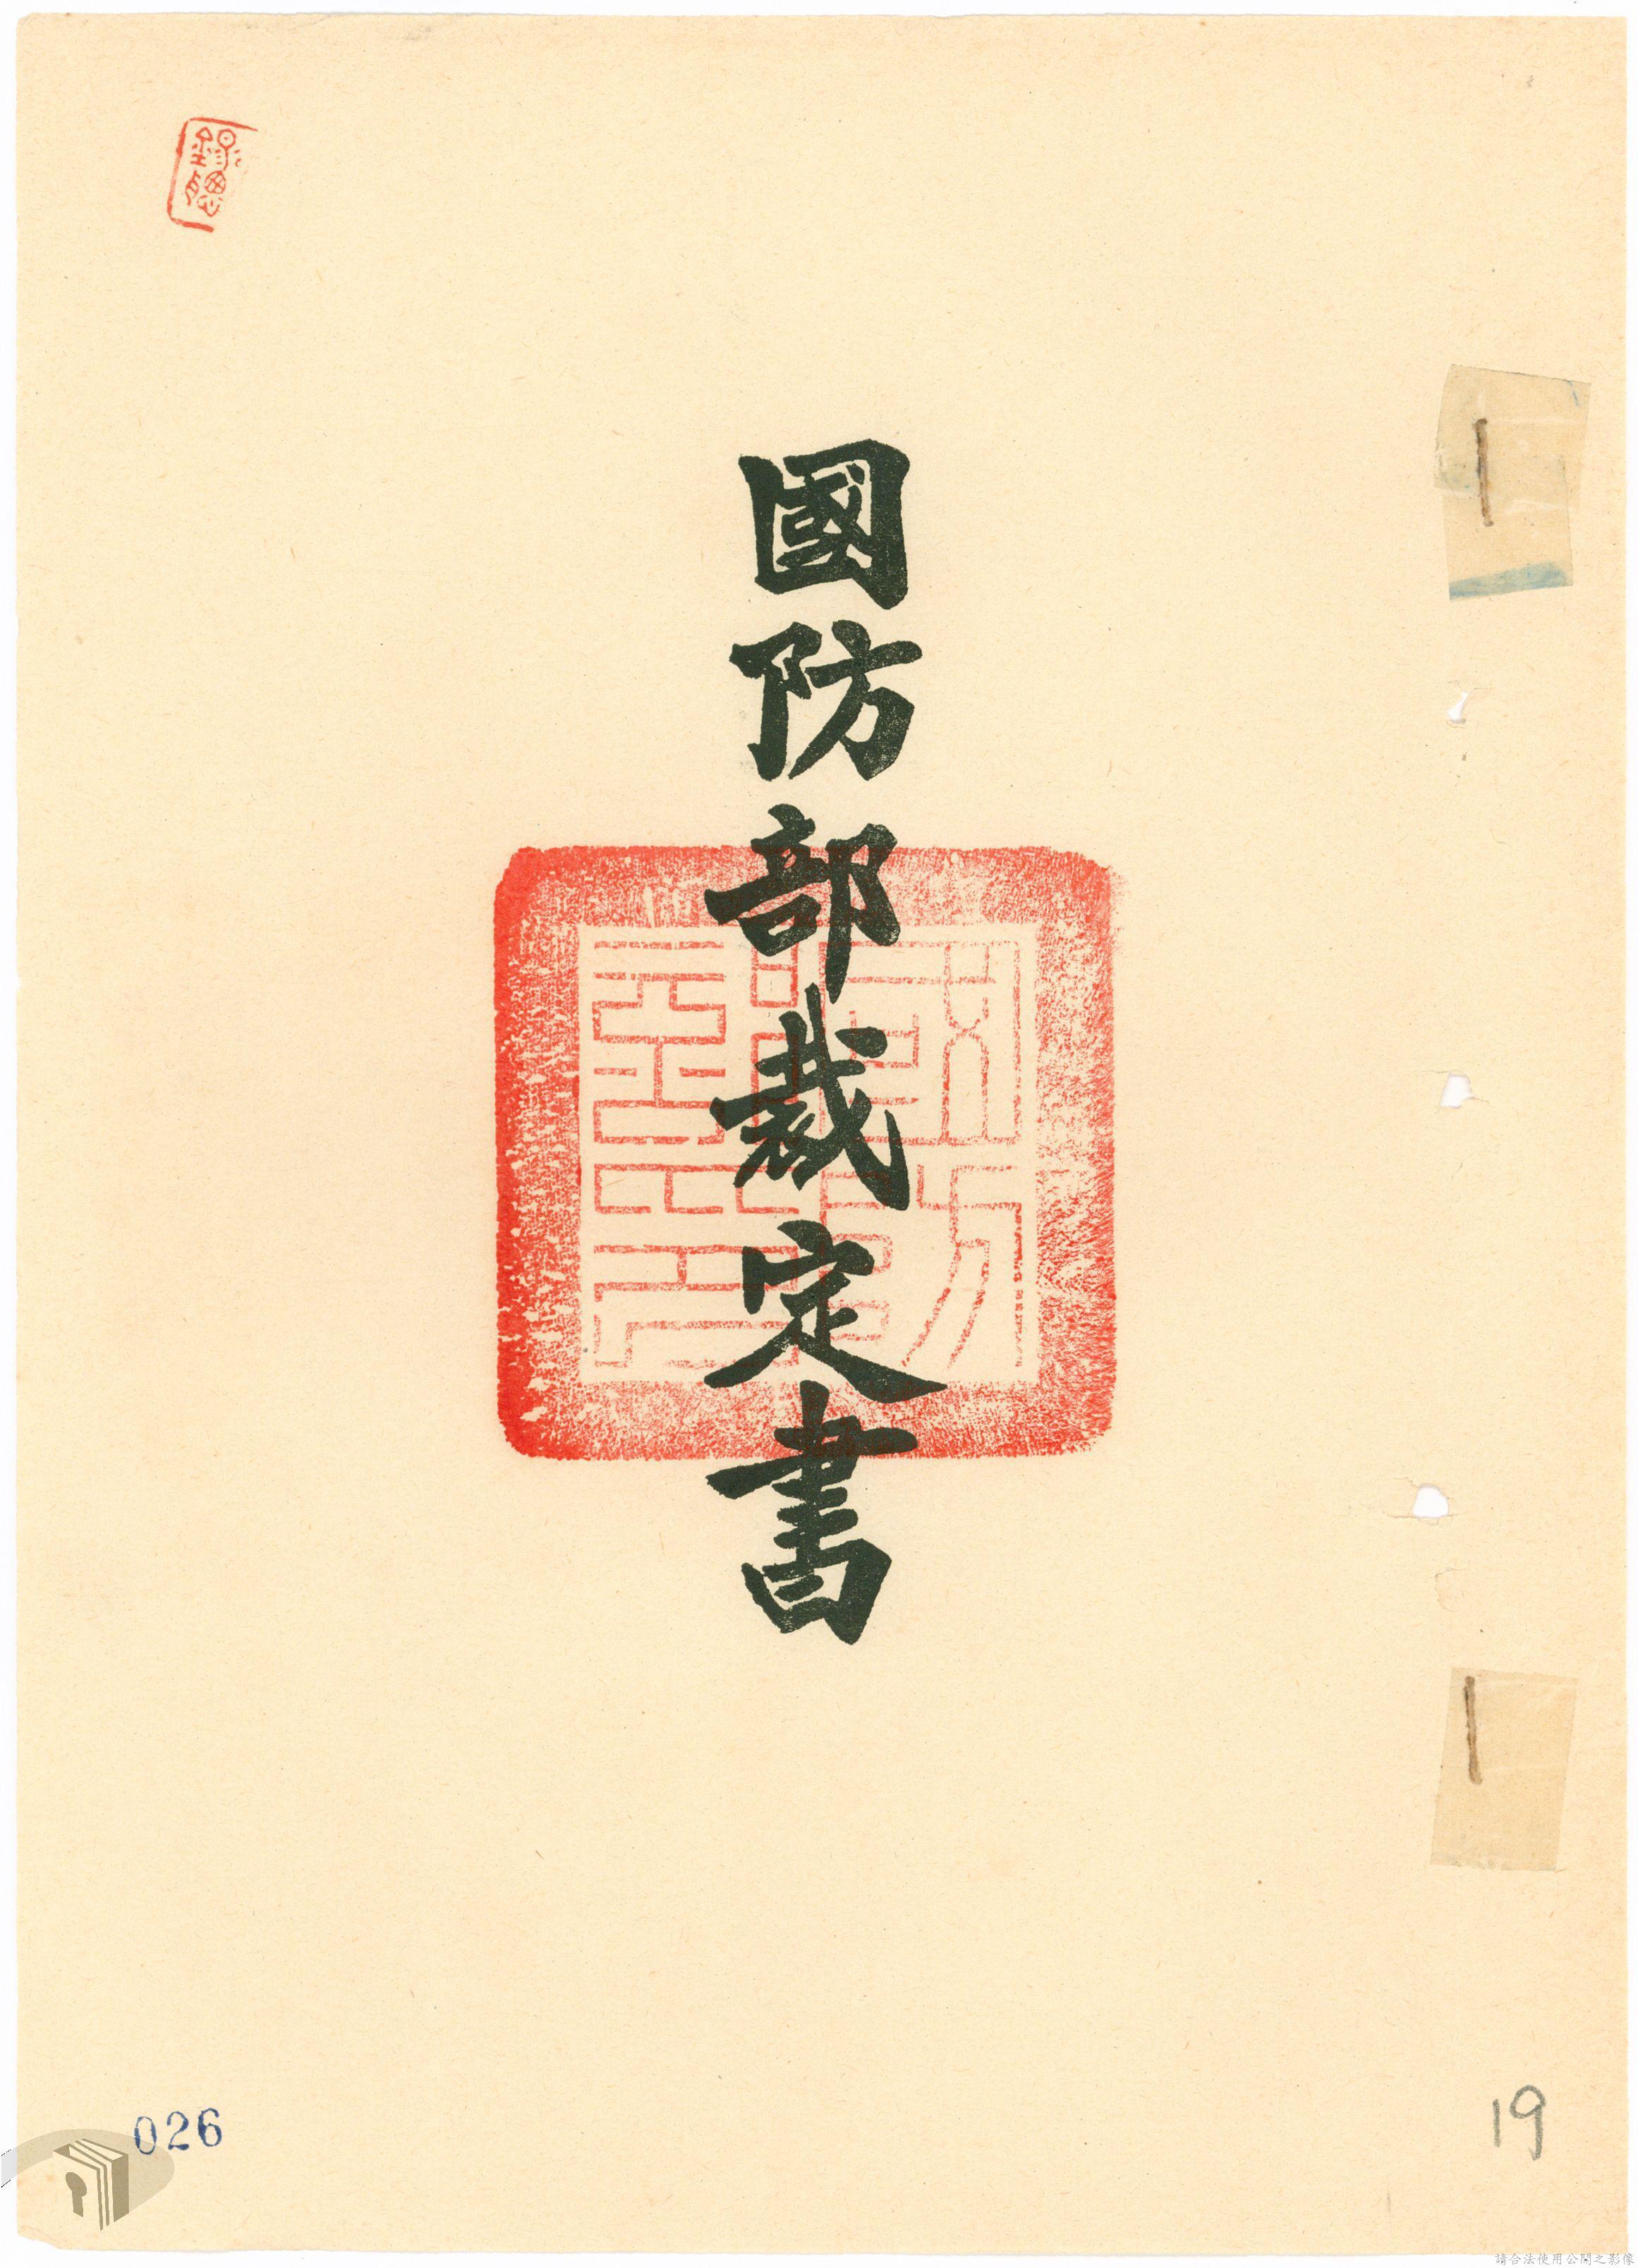 國防部裁定書
026
19
請合法使用公開之影像